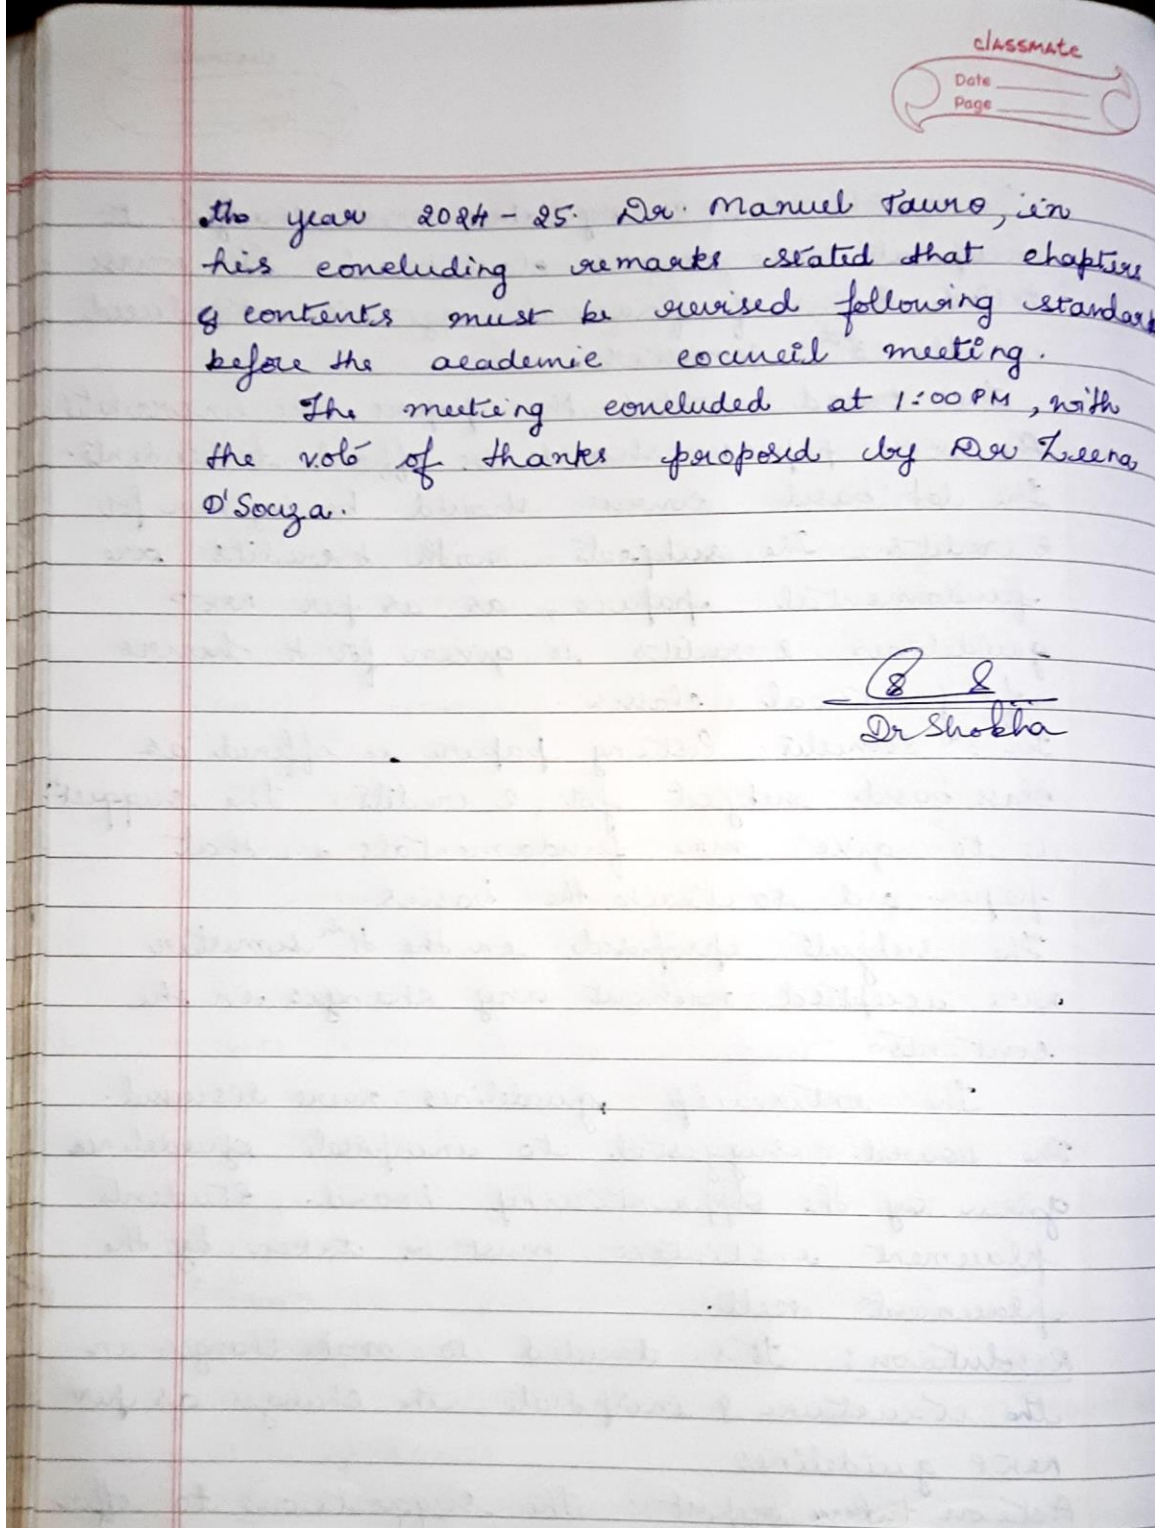 classmate
Date
Page
the year 2024-25. Dr. Manuel Tauro, in
his concluding remarks stated that chapters
& contents must be revised following standard
before the academic council meeting.
The meeting concluded at 1:00 PM, with
the vote of thanks proposed by Dr Zeena
D'Souza.
Dr Shobha